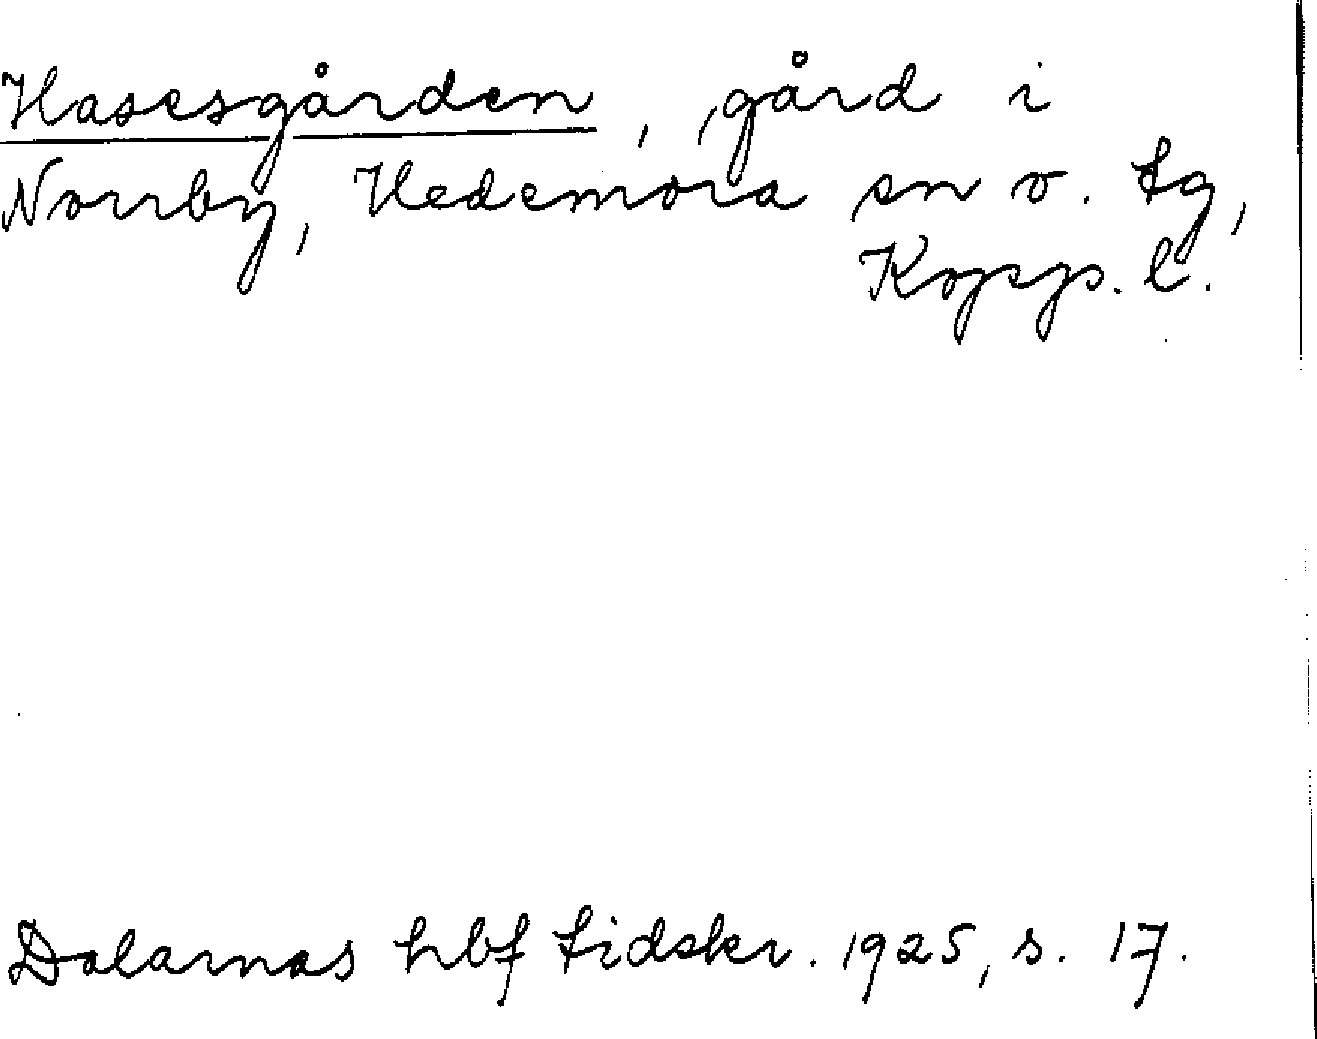 Hasesgården, gård i
Norrby, Hedemora sn o. tg,
Kopps. l.
Dalarnas hbf tidskr. 1925, s. 17.